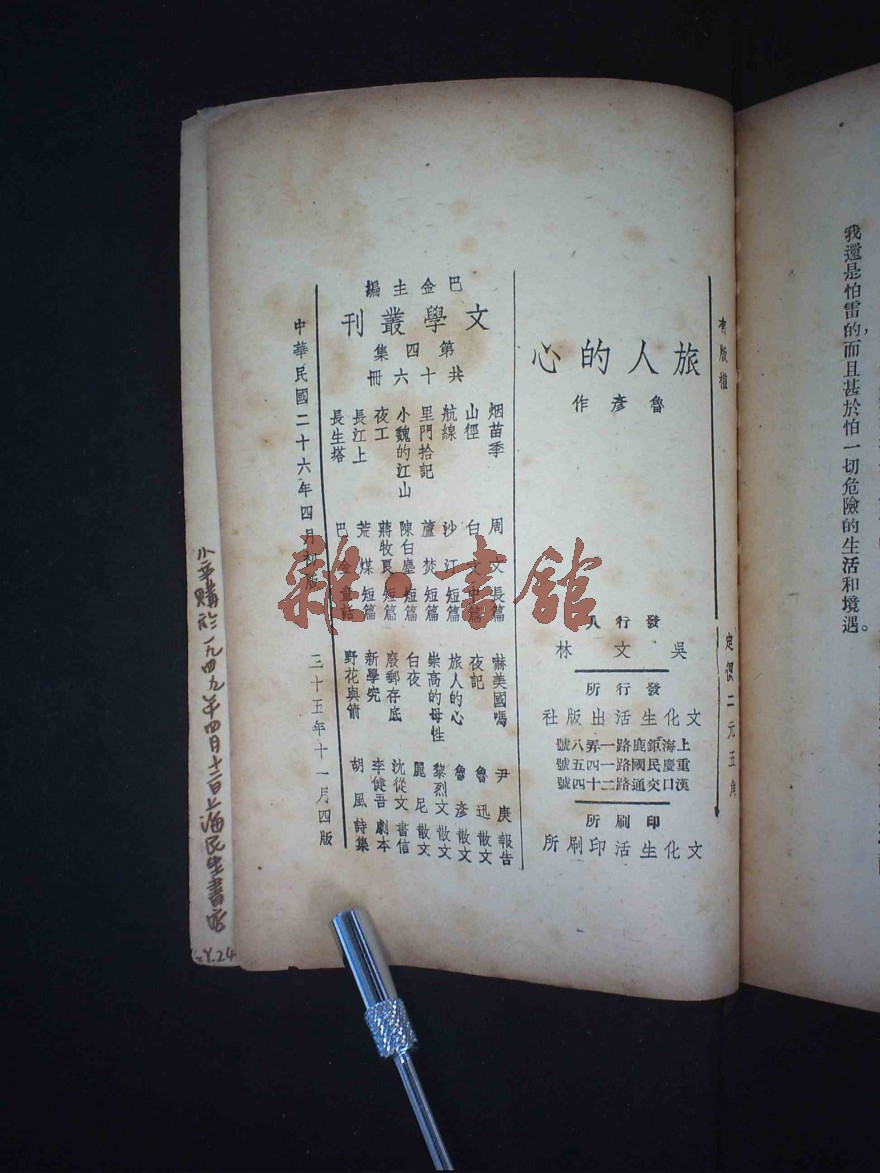 我還是怕雷的，而且甚於怕一切危險的生活和境遇。
有版權
定價二元五角
旅人的心
魯彥作
發行人
吳文林
發行所
文化生活出版社
上海鉅鹿路一弄八號
重慶民國路一四五號
漢口交通路二十四號
印刷所
文化生活印刷所
巴金主編
文學叢刊
第四集
共十六冊
烟苗季 周文 長篇
山徑 白文 中篇
航線 沙汀 短篇
里門拾記 蘆焚 短篇
小魏的江山 陳白塵 短篇
夜工 蔣牧良 短篇
長江上 荒煤 短篇
長生塔 巴金 童話
嚇美國嗎 尹庚 報告
夜記 魯迅 散文
旅人的心 魯彥 散文
崇高的母性 黎烈文 散文
白夜 麗尼 散文
廢郵存底 沈從文 書信
新學究 李健吾 劇本
野花與箭 胡風 詩集
中華民國二十六年四月初版 三十五年十一月四版
購於一九四九年四月十二日上海民生書
雜·書館